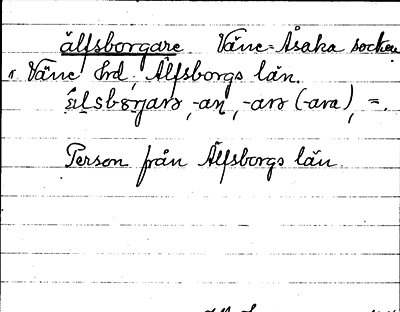 älfsborgare. Väne-Åsaka socken
i Väne hrd, Älfsborgs län.
-an, -arə (-ara), =.
Person från Älfsborgs län.